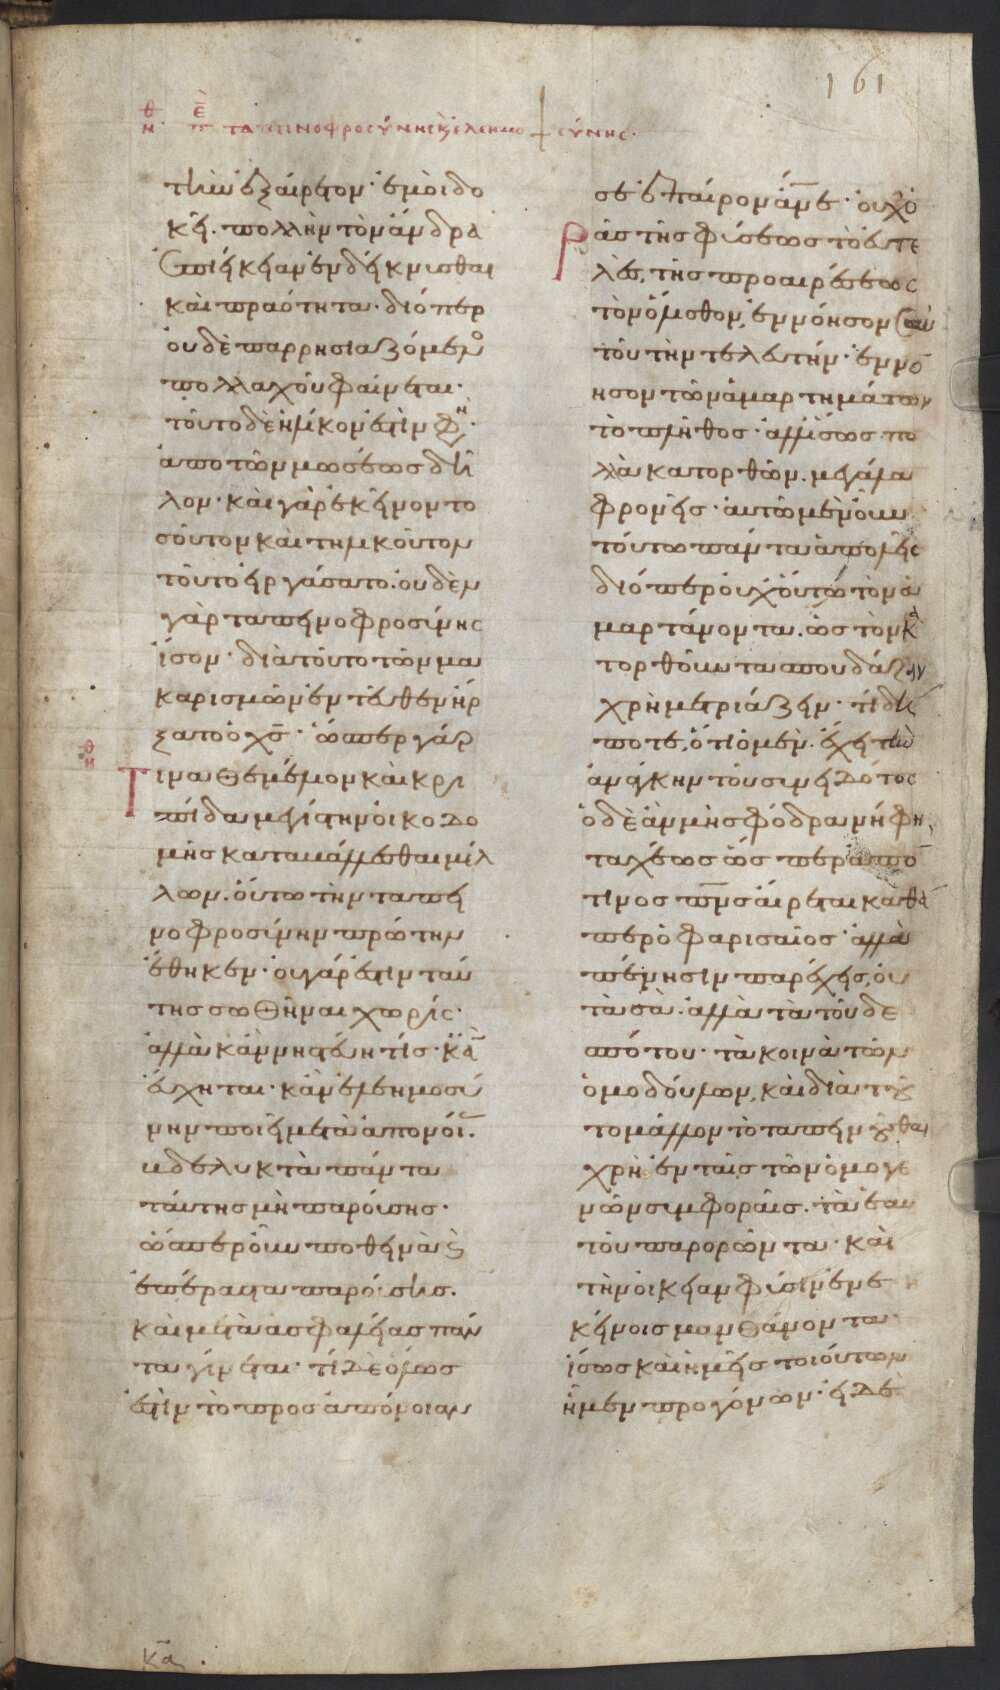 161
θη ε̄π ταπεινοφροσύνης κ ἐλεημοσύνης.
τὴν ἐξαίρετον· ἐμοὶ δο
κεῖ. πολλὴν τὸν ἄνδρα
ἐπιείκειαν ἐνδείκνυσθαι
καὶ πραότητα· διόπερ
οὐδὲ παρρησιαζόμενο
πολλαχοῦ φαίνεται·
τοῦτο δὲ ἡλίκον ἐστὶν φη·
ἀπο τῶν μωσέως δῆ
λον· καὶ γὰρ ἐκεῖνον το
σοῦτον καὶ τηλικοῦτον
τοῦτο εἰργάσατο. οὐδὲν
γὰρ ταπεινοφροσύνης
ἴσον· διὰ τοῦτο τῶν μα
καρισμῶν ἐντεῦθεν ἤρ
ξατο ὁ χς· ὥσπερ γάρ
τινα θεμέλιον καὶ κρι
πίδα μεγίστην οἰκοδο
μῆς καταβάλλεσθαι μέλ
λων. οὕτω τὴν ταπει
νοφροσύνην πρώτην
ἔθηκεν· οὐ γάρ ἐστιν ταύ
της σωθῆναι χωρίς·
ἀλλὰ κἂν νηστεύη τίς· κἂ
εὔχηται· κἂν ἐλεημοσύ
νην ποιεῖ μετὰ ἀπονοί.
βδελυκτὰ πάντα
ταύτης μὴ παρούσης·
ὥσπερ οὖν ποθεινὰ κ
ἐπέραστα παρούσης.
καὶ μετὰ ἀσφαλείας πάν
τα γίνεται· τί δὲ ὅλως
ἐστὶν τὸ πρὸς ἀπόνοιαν
σε ἐπαῖρον ἄνε· οὐχ ὁ
ρᾶς τῆς φύσεως τὸ εὐτε
λὲς, τῆς προαιρέσεως
τὸν ὄλισθον, ἐννόησον σαυ
τοῦ τὴν τελευτήν· ἐννό
ησον τῶν ἁμαρτημάτων
τὸ πλῆθος· ἀλλ' ἴσως πο
λλὰ κατορθῶν. μεγάλα
φρονεῖς· αὐτῶ μὲν οὖν
τούτω πάντα ἀπολεῖς
διόπερ οὐχ οὕτω τὸν ἁ
μαρτάνοντα. ὡς τὸν κα
τορθοῦντα σπουδάζειν
χρὴ μετριάζειν· τί δή
ποτε, ὅτι ὁ μὲν. ἔχει τὴν
ἀνάγκην τοῦ συνειδότος
ὁ δὲ ἂν μὴ σφόδρα νήφη,
ταχέως ὥσπερ ἀπό
τινος πνς αἴρεται καθά
περ ὁ φαρισαῖος· ἀλλὰ
πένησιν παρέχεις, οὐ
τὰ σὰ. ἀλλὰ τὰ τοῦ δε
σπότου· τὰ κοινὰ τῶν
ὁμοδούλων, καὶ διὰ τοῦ
το μᾶλλον τὸ ταπεινοῦσθαι
χρὴ ἐν ταῖς τῶν ὁμογε
νῶν συμφοραῖς. τὰ ἑαυ
τοῦ παρορῶντα· καὶ
τὴν οἰκείαν φύσιν ἐν ἐ
κείνοις μανθάνοντα·
ἴσως καὶ ἡμεῖς τοιούτων
ἦμεν προγόνων· εἰ δὲ
κα